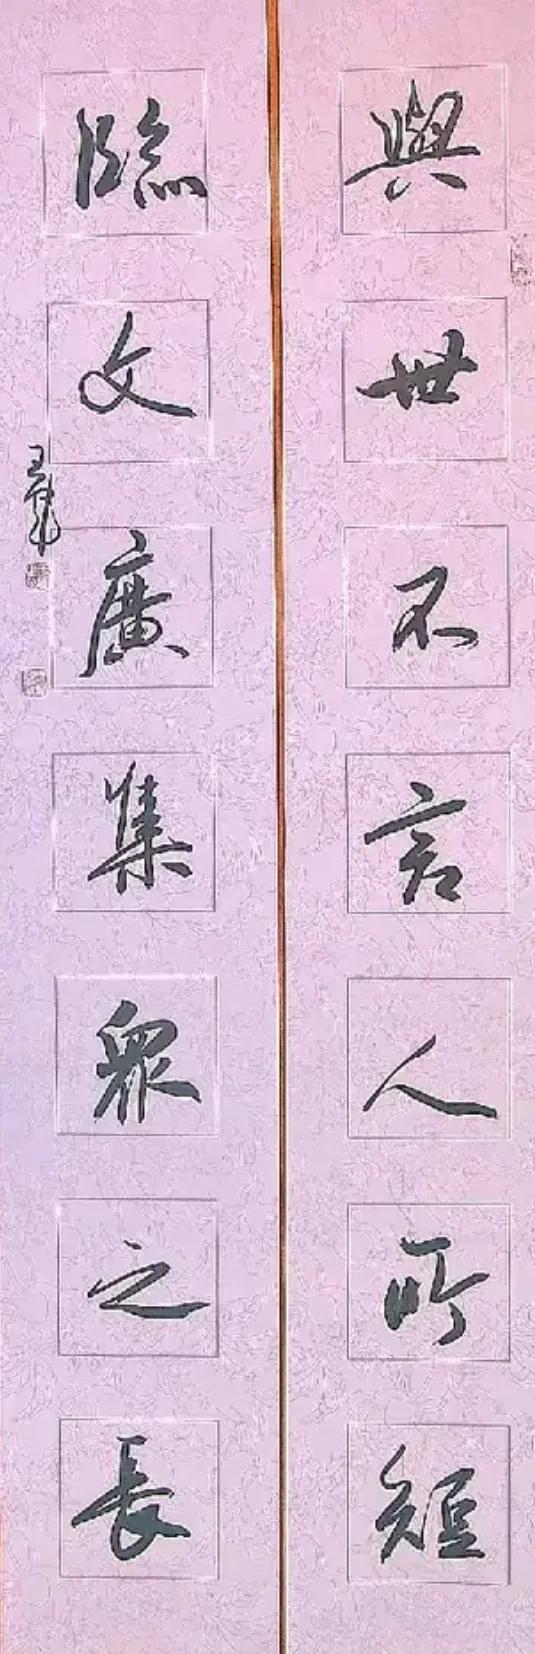 與世不言人所短
臨文廣集眾之長